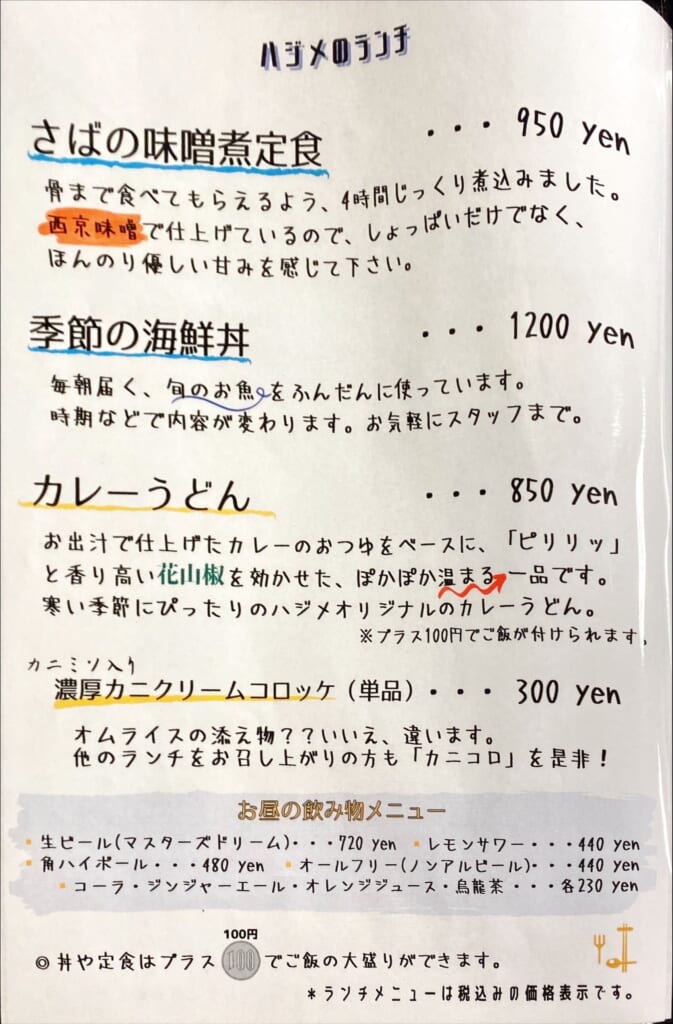 ハジメのランチ
さばの味噌煮定食 ・・・ 950 yen
骨まで食べてもらえるよう、4時間じっくり煮込みました。
西京味噌で仕上げているので、しょっぱいだけでなく、
ほんのり優しい甘みを感じて下さい。
季節の海鮮丼 ・・・ 1200 yen
毎朝届く、旬のお魚をふんだんに使っています。
時期などで内容が変わります。お気軽にスタッフまで。
カレーうどん ・・・ 850 yen
お出汁で仕上げたカレーのおつゆをベースに、「ピリリッ」
と香り高い花山椒を効かせた、ぽかぽか温まる一品です。
寒い季節にぴったりのハジメオリジナルのカレーうどん。
※プラス100円でご飯が付けられます。
カニミソ入り
濃厚カニクリームコロッケ(単品)・・・ 300 yen
オムライスの添え物??いいえ、違います。
他のランチをお召し上がりの方も「カニコロ」を是非!
お昼の飲み物メニュー
生ビール(マスターズドリーム)・・・720 yen レモンサワー・・・440 yen
角ハイボール・・・480 yen オールフリー(ノンアルビール)・・・440 yen
コーラ・ジンジャーエール・オレンジジュース・烏龍茶・・・各230 yen
100円
◎丼や定食はプラス100でご飯の大盛りができます。
*ランチメニューは税込みの価格表示です。